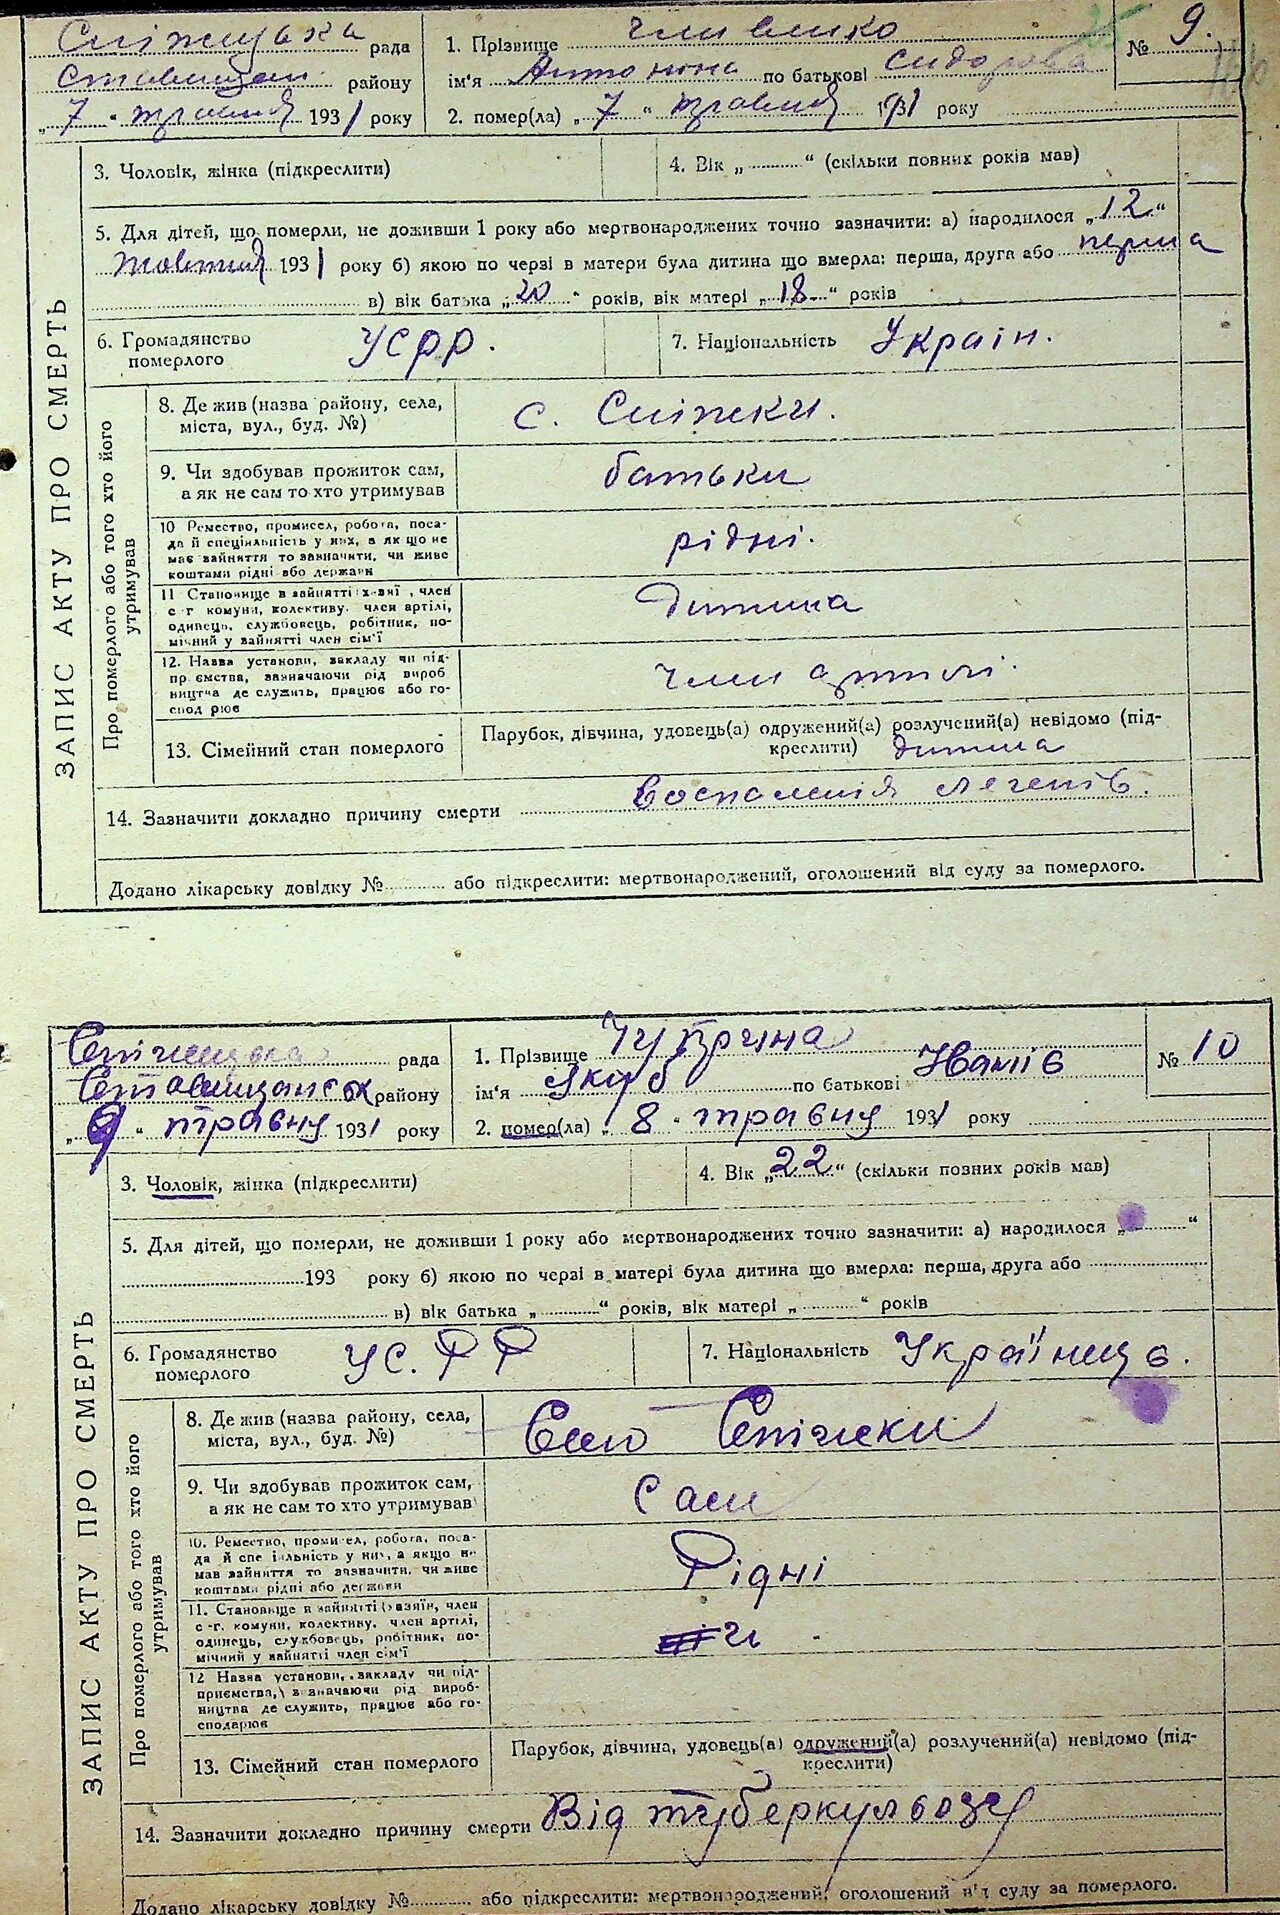 рада
району
„ 7 " травня 1931 року
1. Прізвище
ім'я Антонина по батькові Сидорова
2. помер(ла) „ 7 " травня 1931 року
№ 9.
ЗАПИС АКТУ ПРО СМЕРТЬ
3. Чоловік, жінка (підкреслити)
4. Вік „ " (скільки повних років мав)
5. Для дітей, що померли, не доживши 1 року або мертвонароджених точно зазначити: а) народилося „ 12 "
1931 року б) якою по черзі в матери була дитина що вмерла: перша, друга або перша
в) вік батька „ 20 " років, вік матері „ 18 " років
6. Громадянство
померлого
УСРР.
7. Національність Україн.
Про померлого або того хто його
утримував
8. Де жив (назва району, села,
міста, вул., буд. №)
с. Стіжки.
9. Чи здобував прожиток сам,
а як не сам то хто утримував
батьки
10 Ремество, промисел, робота, поса-
да й спеціяльність у них, а як що не
має зайняття то зазначити, чи живе
коштами рідні або держави
рідні.
11 Становище в зайнятті член
с-г комуни, колективу, член артілі,
одинець, службовець, робітник, по-
мічний у зайнятті член сім'ї
Дитина
12. Назва установи, закладу чи під-
приємства, зазначаючи рід вироб
ництва де служить, працює або го-
сподарює
член артілі.
13. Сімейний стан померлого
Парубок, дівчина, удовець(а) одружений(а) розлучений(а) невідомо (під-
креслити) дитина
14. Зазначити докладно причину смерти Воспаленія легенів.
Додано лікарську довідку № або підкреслити: мертвонароджений, оголошений від суду за померлого.
рада
Ставищанськ району
„ 9 " травня 1931 року
1. Прізвище Чуприна
ім'я Якуб по батькові Іванів
2. помер(ла) „ 8 " травня 1931 року
№ 10
ЗАПИС АКТУ ПРО СМЕРТЬ
3. Чоловік, жінка (підкреслити)
4. Вік „ 22 " (скільки повних років мав)
5. Для дітей, що померли, не доживши 1 року або мертвонароджених точно зазначити: а) народилося „ "
193 року б) якою по черзі в матері була дитина що вмерла: перша, друга або
в) вік батька „ " років, вік матері „ " років
6. Громадянство
померлого
УС.РР
7. Національність
Про померлого або того хто його
утримував
8. Де жив (назва району, села,
міста, вул., буд. №)
Село Стіжки
9. Чи здобував прожиток сам,
а як не сам то хто утримував
Сам
10. Ремество, промисел, робота, поса-
да й спеціяльність у них, а якщо не
мав зайняття то зазначити, чи живе
коштами рідні або держави
Рідні
11. Становище в зайнятті (хазяїн, член
с-г. комуни, колективу, член артілі,
одинець, службовець, робітник, по-
мічний у зайнятті член сім'ї
12 Назва установи, закладу чи під-
приємства, зазначаючи рід вироб-
ництва де служить, працює або го-
сподарює
13. Сімейний стан померлого
Парубок, дівчина, удовець(а) одружений(а) розлучений(а) невідомо (під-
креслити)
14. Зазначити докладно причину смерти Від туберкульозу
Додано лікарську довідку № або підкреслити: мертвонароджений, оголошений від суду за померлого.